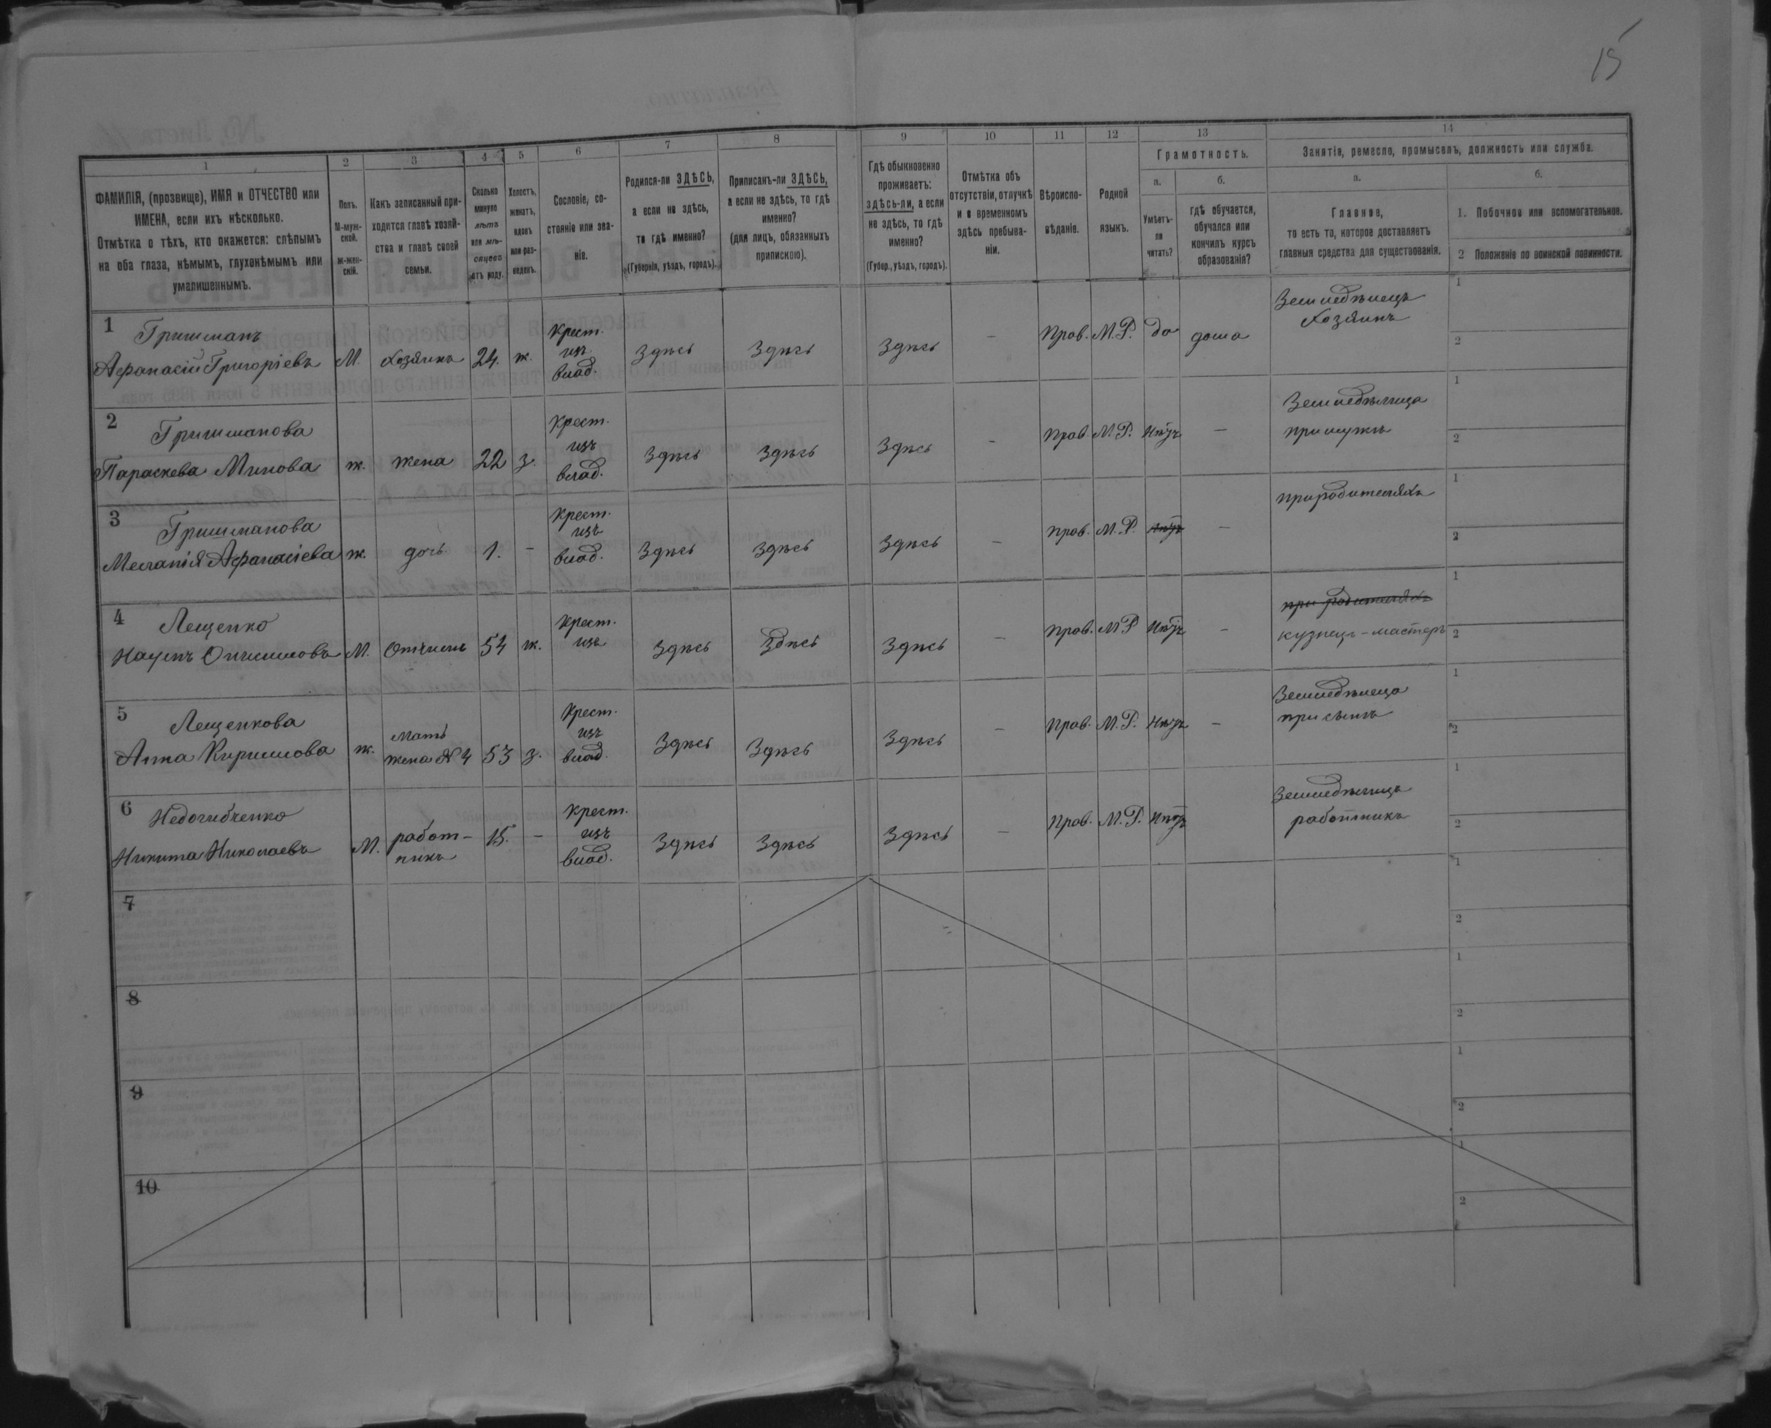 15
1
2
3
4
5
6
7
8
9
10
11
12
13
14
ФАМИЛІЯ, (прозвище), ИМЯ и ОТЧЕСТВО или
ИМЕНА, если ихъ нѣсколько.
Отмѣтка о тѣхъ, кто окажется: слѣпымъ
на оба глаза, нѣмымъ, глухонѣмымъ или
умалишеннымъ.
Полъ.
М-муж-
ской.
ж-жен-
скій.
Какъ записанный при-
ходится главѣ хозяй-
ства и главѣ своей
семьи.
Сколько
минуло
лѣтъ
или мѣ-
сяцевъ
отъ роду.
Холостъ,
женатъ,
вдовъ
или раз-
веденъ.
Сословіе, со-
стояніе или зва-
ніе.
Родился-ли ЗДѢСЬ,
а если не здѣсь,
то гдѣ именно?
(Губернія, уѣздъ, городъ).
Приписанъ-ли ЗДѢСЬ,
а если не здѣсь, то гдѣ
именно?
(для лицъ, обязанныхъ
припискою).
Гдѣ обыкновенно
проживаетъ:
здѣсь-ли, а если
не здѣсь, то гдѣ
именно?
(Губер., уѣздъ, городъ).
Отмѣтка объ
отсутствіи, отлучкѣ
и о временномъ
здѣсь пребыва-
ніи.
Вѣроиспо-
вѣданіе.
Родной
языкъ.
Грамотность.
а.
Умѣетъ-
ли
читать?
б.
гдѣ обучается,
обучался или
кончилъ курсъ
образованія?
Занятіе, ремесло, промыселъ, должность или служба.
а.
Главное,
то есть то, которое доставляетъ
главныя средства для существованія.
б.
1. Побочное или вспомогательное.
2 Положеніе по воинской повинности.
1 Гришманъ
Афанасій Григорьевъ М. Хозяинъ 24. ж. Крест. изъ влад. Здѣсь Здѣсь Здѣсь - Прав. М.Р. да дома Земледѣлецъ Хозяинъ 1 2
2 Гришманова
Параскева Минова ж. жена 22 з. Крест. изъ влад. Здѣсь Здѣсь Здѣсь - Прав. М.Р. Нѣтъ - Земледѣлица при мужѣ 1 2
3 Гришманова
Меланія Афанасіева ж. дочь 1. - Крест. изъ влад. Здѣсь Здѣсь Здѣсь - Прав. М.Р. нѣтъ - при родителяхъ 1 2
4 Лещенко
Наумъ Онисимовъ М. Отчимъ 54 ж. Крест. изъ Здѣсь Здѣсь Здѣсь - Прав. М.Р. Нѣтъ - при родителяхъ кузнецъ-мастеръ 1 2
5 Лещенкова
Анна Кирилова ж. мать жена №4 53 з. Крест. изъ влад. Здѣсь Здѣсь Здѣсь - Прав. М.Р. Нѣтъ - при сынѣ 1 2
6 Недогибченко
Никита Николаевъ М. работ-
никъ 15. - Крест. изъ влад. Здѣсь Здѣсь Здѣсь - Прав. М.Р. Нѣтъ работникъ 1 2
7 1 2
8 1 2
9 1 2
10 1 2